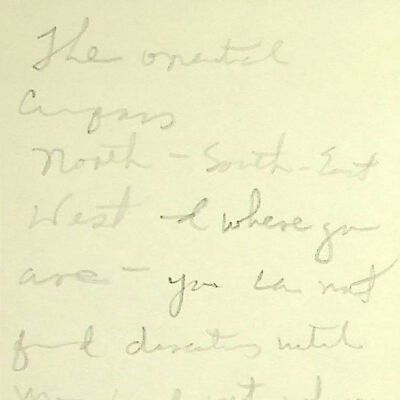 The oriental
Compass
North - South - East
West - & where you
are - you can not
find directions until